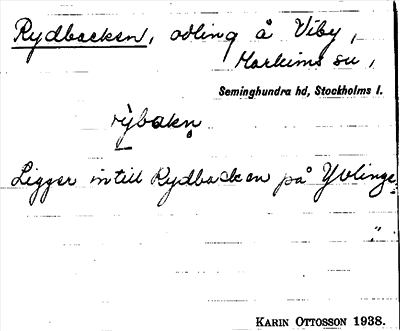 Rydbacken, odling å Viby,
Markims sn,
Seminghundra hd, Stockholms l.
rỳbakn̥
Ligger intill Rydbacken på Yvlinge.
„
KARIN OTTOSSON 1938.